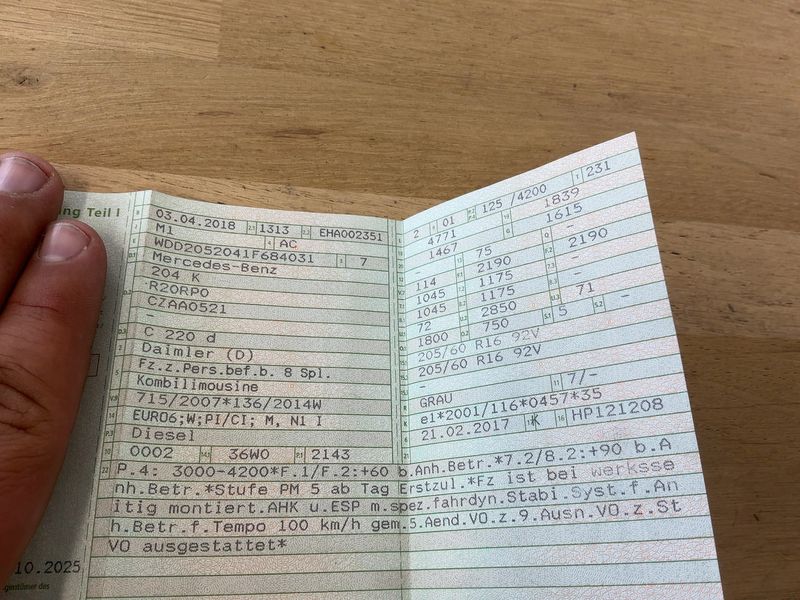 ng Teil I
B 03.04.2018 2.1 1313 2.2 EHA002351
J M1 4 AC
E WDD2052041F684031 3 7
D.1 Mercedes-Benz
204 K
D.2 R20RP0
CZAA0521
-
D.3 C 220 d
2 Daimler (D)
5 Fz.z.Pers.bef.b. 8 Spl.
Kombilimousine
V.9 715/2007*136/2014W
14 EURO6;W;PI/CI; M, N1 I
P.3 Diesel
10 0002 14.1 36W0 P.1 2143
L 2 9 01 P.2 P.4 125 /4200 T 231
18 4771 19 1839
20 1467 G 1615
12 - 13 75 Q -
V.7 114 F.1 2190 F.2 2190
7.1 1045 7.2 1175 7.3 -
8.1 1045 8.2 1175 8.3 -
U.1 72 U.2 2850 U.3 71
O.1 1800 O.2 750 S.1 5 S.2 -
15.1 205/60 R16 92V
15.2 205/60 R16 92V
15.3 -
R GRAU 11 7/-
K e1*2001/116*0457*35
6 21.02.2017 17 K 16 HP121208
21
22 P.4: 3000-4200*F.1/F.2:+60 b.Anh.Betr.*7.2/8.2:+90 b.A
nh.Betr.*Stufe PM 5 ab Tag Erstzul.*Fz ist bei werksse
itig montiert.AHK u.ESP m.spez.fahrdyn.Stabi.Syst.f.An
h.Betr.f.Tempo 100 km/h gem.5.Aend.VO.z.9.Ausn.VO.z.St
VO ausgestattet*
.10.2025
gentümer des